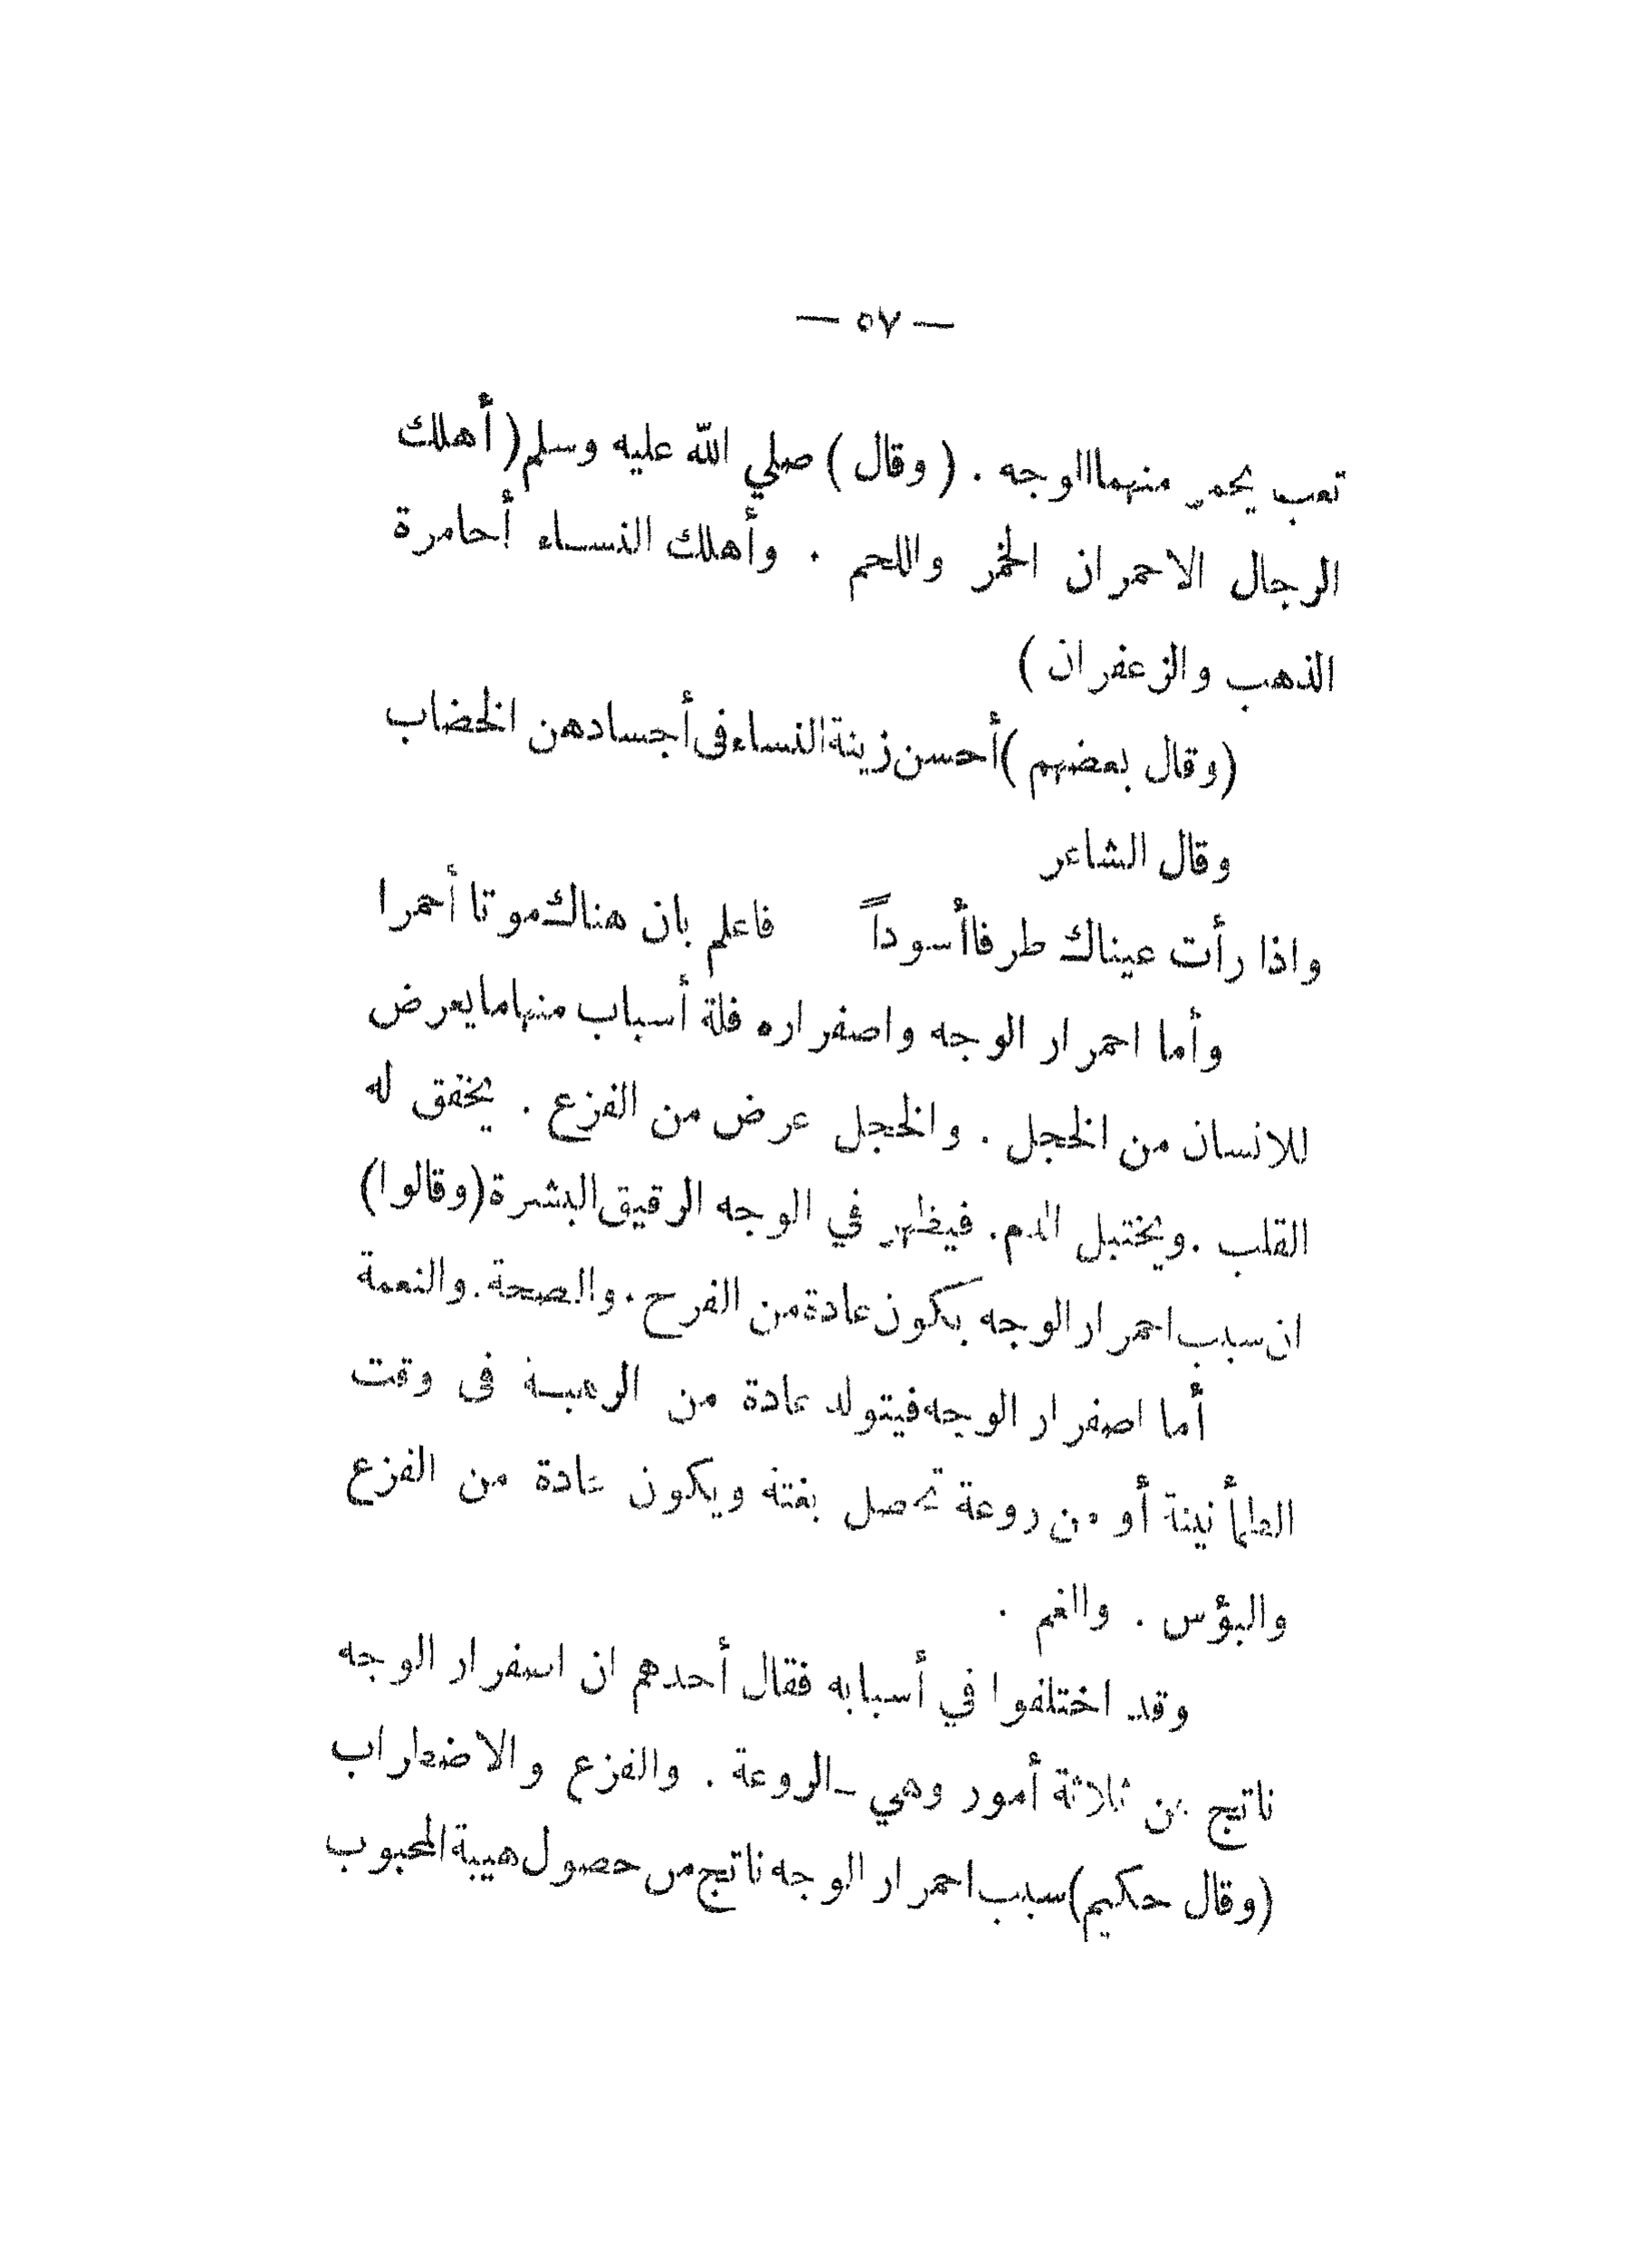 — ٥٧ —
تعب يحمر منهما الوجه . ( وقال ) صلي الله عليه وسلم ( أهلك
الرجال الاحمران الخمر واللحم . وأهلك النساء أحامرة
الذهب والزعفران )
(وقال بعضهم ) أحسن زينة النساء في أجسادهن الخضاب
وقال الشاعر
واذا رأت عيناك طرفا أسوداً فاعلم بان هناك موتا أحمرا
وأما احمرار الوجه واصفراره فلة أسباب منها ما يعرض
للانسان من الخجل . والخجل عرض من الفزع . يخفق له
القلب . ويختبل الدم . فيظهر في الوجه الرقيق البشرة (وقالوا)
ان سبب احمرار الوجه يكون عادة من الفرح . والصحة . والنعمة
أما اصفرار الوجه فيتولد عادة من الرهبة في وقت
الطمأنينة أو من روعة تحصل بغتة ويكون عادة من الفزع
والبؤس . والغم .
وقد اختلفوا في أسبابه فقال أحدهم ان اصفرار الوجه
ناتج من ثلاثة أمور وهي ـ الروعة . والفزع والاضطراب
(وقال حكيم) سبب احمرار الوجه ناتج من حصول هيبة المحبوب